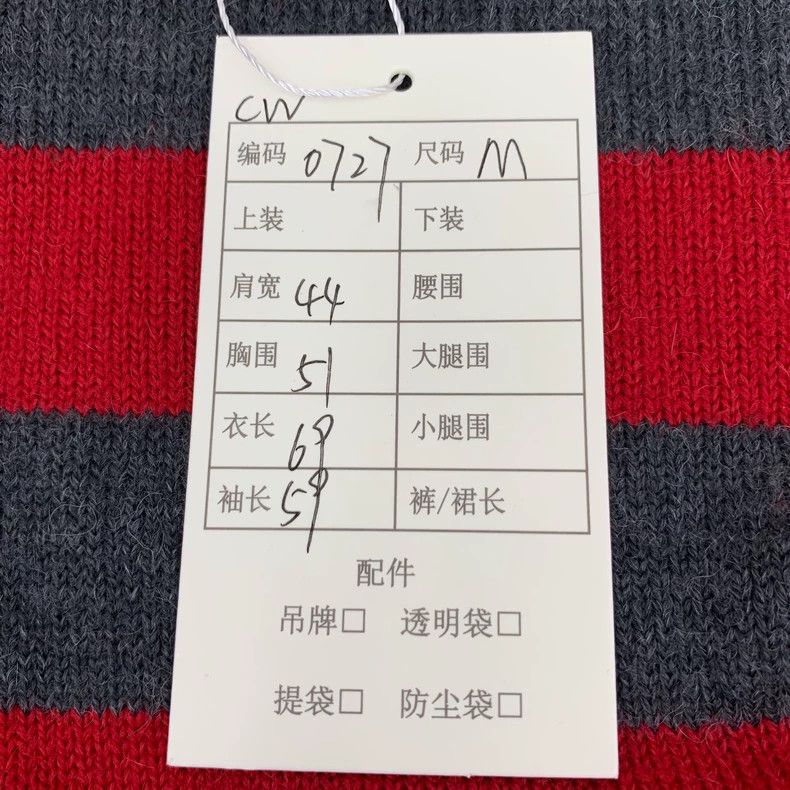 CW
编码 0727 尺码 M
上装 下装
肩宽 44 腰围
胸围 51 大腿围
衣长 69 小腿围
袖长 59 裤/裙长
配件
吊牌□ 透明袋□
提袋□ 防尘袋□